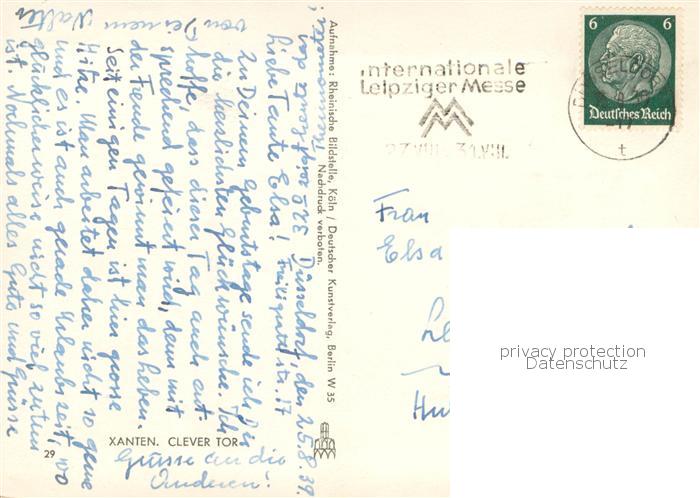 6 6
Deutsches Reich
Internationale
Leipziger Messe
27.VIII. 31.VIII.
t
Frau
Elsa
privacy protection
Datenschutz
Aufnahme: Rheinische Bildstelle, Köln / Deutscher Kunstverlag, Berlin W 35
Nachdruck verboten.
Düsseldorf, den 25.8.39.
Liebe Tante Elsa!
Zu Deinem Geburtstage sende ich Dir
die herzlichsten Glückwünsche. Ich
hoffe, dass dieser Tag auch ent-
sprechend gefeiert wird, denn mit
der Freude gewinnt man das Leben.
Seit einigen Tagen ist hier grosse
Hitze. Man arbeitet daher nicht so gerne
und es ist auch gerade Urlaubszeit, wo
glücklicherweise nicht so viel zu tun
ist. Nochmals alles Gute und Grüsse
von Deinem Walter
XANTEN. CLEVER TOR
29
Grüsse an die
Anderen!